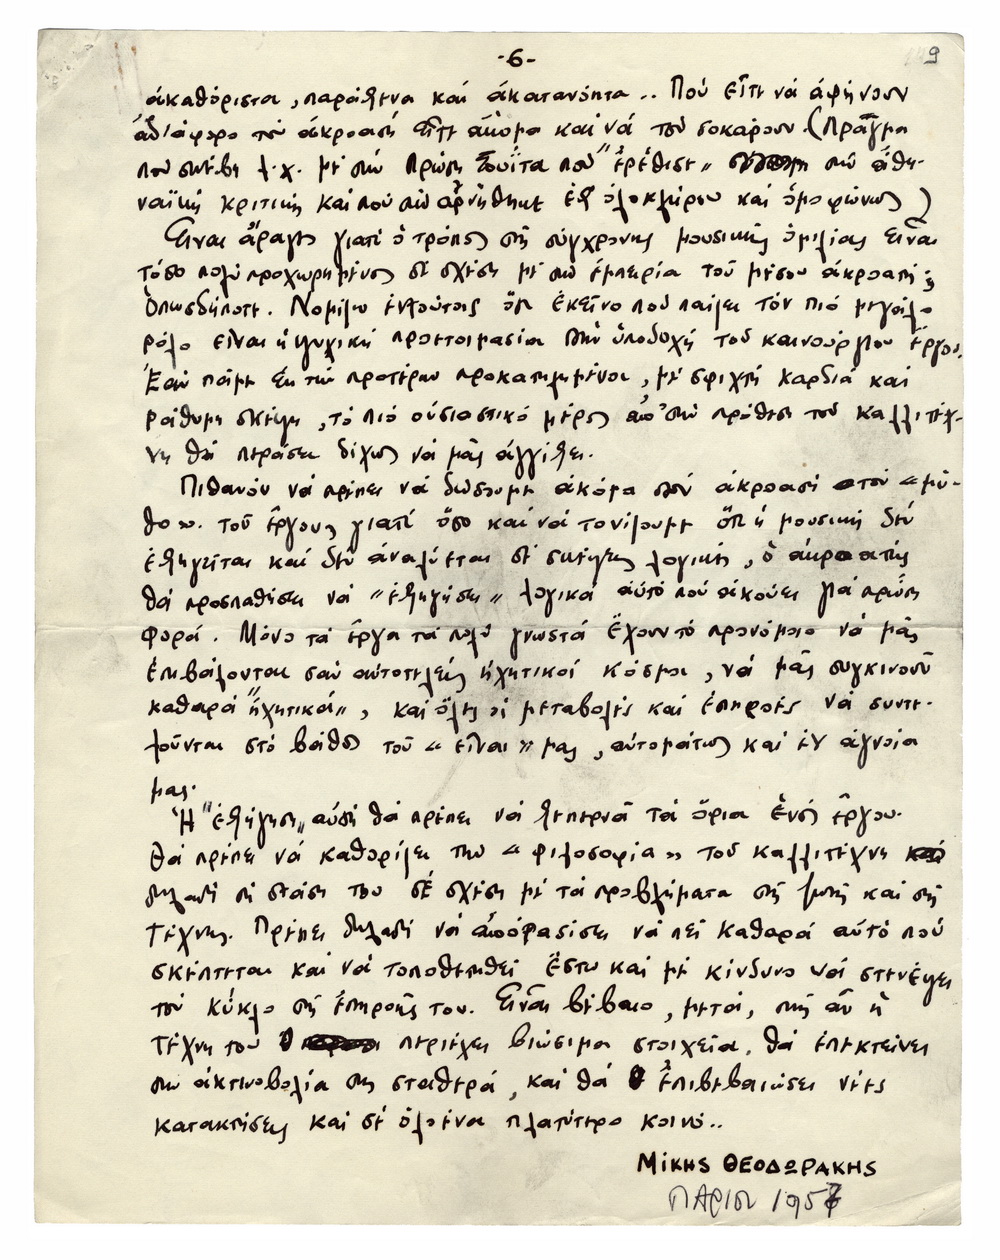 -6-
9
ἀκαθόριστα, παράξενα καί ἀκατανόητα .. Πού εἴτε νά ἀφήνουν
ἀδιάφορο τόν ἀκροατή εἴτε ἀκόμα καί νά τόν σοκάρουν. (Πρᾶγμα
πού συνέβη λ.χ. μέ τήν πρώτη Σουΐτα πού "ἐρέθισε" τήν ἀθη-
ναϊκή κριτική καί πού τήν ἀρνήθηκε ἐξ ὁλοκλήρου καί ὁμοφώνως)
Εἶναι ἄραγε γιατί ὁ τρόπος τῆς σύγχρονης μουσικῆς ὁμιλίας εἶναι
τόσο πολύ προχωρημένος σέ σχέση μέ τήν ἐμπειρία τοῦ μέσου ἀκροατῆ;
Ὁπωσδήποτε. Νομίζω ἐντούτοις ὅτι ἐκεῖνο πού παίζει τόν πιό μεγάλο
ρόλο εἶναι ἡ ψυχική προετοιμασία στήν ὑποδοχή τοῦ καινούργιου ἔργου.
Ἐάν πᾶμε ἐκ τῶν προτέρων προκατειλημένοι, μέ σφιχτή καρδιά καί
ράθυμη σκέψη, τό πιό οὐσιαστικό μέρος ἀπό τήν πρόθεση τοῦ καλλιτέχ-
νη θά περάσει δίχως νά μᾶς ἀγγίξει.
Πιθανόν νά πρέπει νά δώσουμε ἀκόμα στόν ἀκροατή τόν «μύ-
θο». τοῦ ἔργου, γιατί ὅσο καί νά τονίζουμε ὅτι ἡ μουσική δέν
ἐξηγεῖται καί δέν ἀναλύεται σέ σκέψεις λογικές, ὁ ἀκροατής
θά προσπαθήσει νά "ἐξηγήσει" λογικά αὐτό πού ἀκούει γιά πρώτη
φορά. Μόνο τά ἔργα τά πολύ γνωστά ἔχουν τό προνόμοιο νά μᾶς
ἐπιβάλονται σάν αὐτοτελείς ἠχητικοί κόσμοι, νά μᾶς συγκινοῦν
καθαρά "ἠχητικά", καί ὅλες οἱ μεταβολές καί ἐπιρροές νά συντε-
λοῦνται στό βάθος τοῦ «εἶναι» μας, αὐτομάτως καί ἐν ἀγνοία
μας.
Ἡ "ἐξήγηση" αὐτή θά πρέπει νά ξεπερνᾶ τά ὅρια ἑνός ἔργου.
Θά πρέπει νά καθορίζει τήν «φιλοσοφία» τοῦ καλλιτέχνη
δηλαδή τή στάση του σέ σχέση μέ τά προβλήματα τῆς ζωῆς καί τῆς
Τέχνης. Πρέπει δηλαδή νά ἀποφασίσει νά πεῖ καθαρά αὐτό πού
σκέπτεται καί νά τοποθετηθεῖ ἔστω καί μέ κίνδυνο νά στενέψει
τόν κύκλο τῆς ἐπιρροῆς του. Εἶναι βέβαιο, μετά, πώς ἄν ἡ
τέχνη του περιέχει βιώσιμα στοιχεία, θά ἐπεκτείνει
τήν ἀκτινοβολία της σταθερά, καί θά ἐπιβεβαιώσει νέες
κατακτήσεις καί σέ ὁλοένα πλατύτερο κοινό..
ΜΙΚΗΣ ΘΕΟΔΩΡΑΚΗΣ
ΠΑΡΙΣΙ 1957